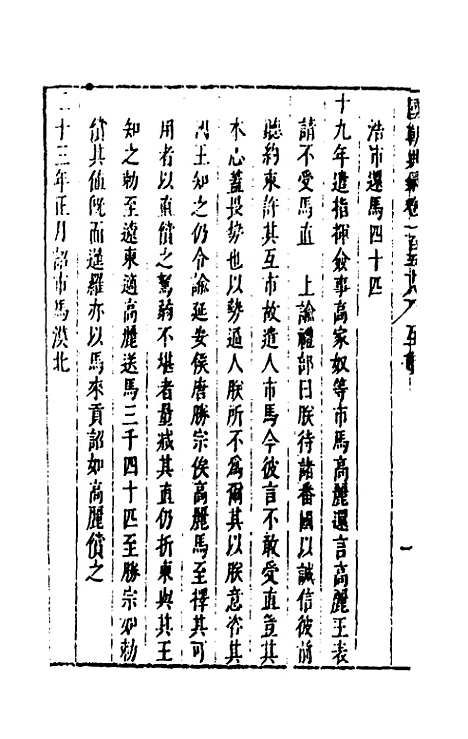 國朝典彙卷一百五十八 互市 一
浩市還馬四十匹
十九年遣指揮僉事高家奴等市馬高麗還言高麗王表
請不受馬直 上諭禮部曰朕待諸番國以誠信彼前
聽約束許其互市故遣人市馬今彼言不敢受直豈其
本心蓋畏勢也以勢逼人朕所不爲爾其以朕意咨其
國王知之仍令諭延安侯唐勝宗俟高麗馬至擇其可
用者以直償之駑弱不堪者量减其直仍折柬與其王
知之勅至遼東適高麗送馬三千四十匹至勝宗如勅
償其值旣而暹羅亦以馬來貢詔如高麗償之
二十三年正月詔市馬漠北